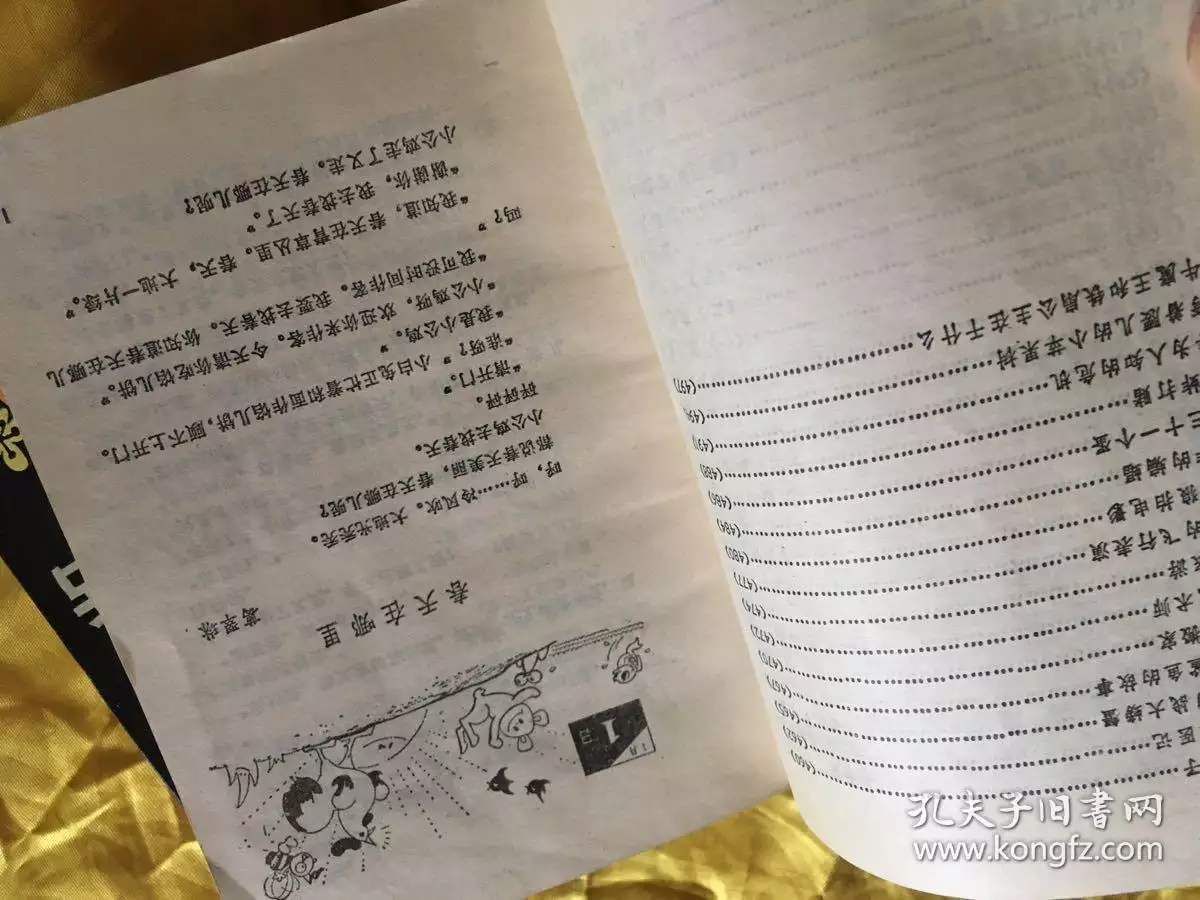 子……(460)
医记……(462)
战大螃蟹……(465)
鱼的故事……(467)
搬家……(470)
术师……(472)
游……(474)
的飞行表演……(477)
狼拍电影……(480)
的蝙蝠……(484)
三十一个蛋……(486)
打赌……(488)
为人知的危机……(491)
着腰儿的小苹果树……(494)
牛魔王和铁扇公主在干什么……(497)
1月
1
日
春天在哪里
葛翠琳
呼，呼……冷风吹。大地光秃秃。
都说春天美丽，春天在哪儿呢？
小公鸡去找春天。
砰砰砰。
“请开门。”
“谁呀？”小白兔正忙着和面作馅儿饼，顾不上开门。
“我是小公鸡。”
“小公鸡呀，欢迎你来作客。今天请你吃馅儿饼。”
“我可没时间作客。我要去找春天。你知道春天在哪儿
吗？”
“我知道，春天在青草丛里。春天，大地一片绿。”
“谢谢你，我去找春天了。”
小公鸡走了又走。春天在哪儿呢？
1
孔夫子旧書网
www.kongfz.com